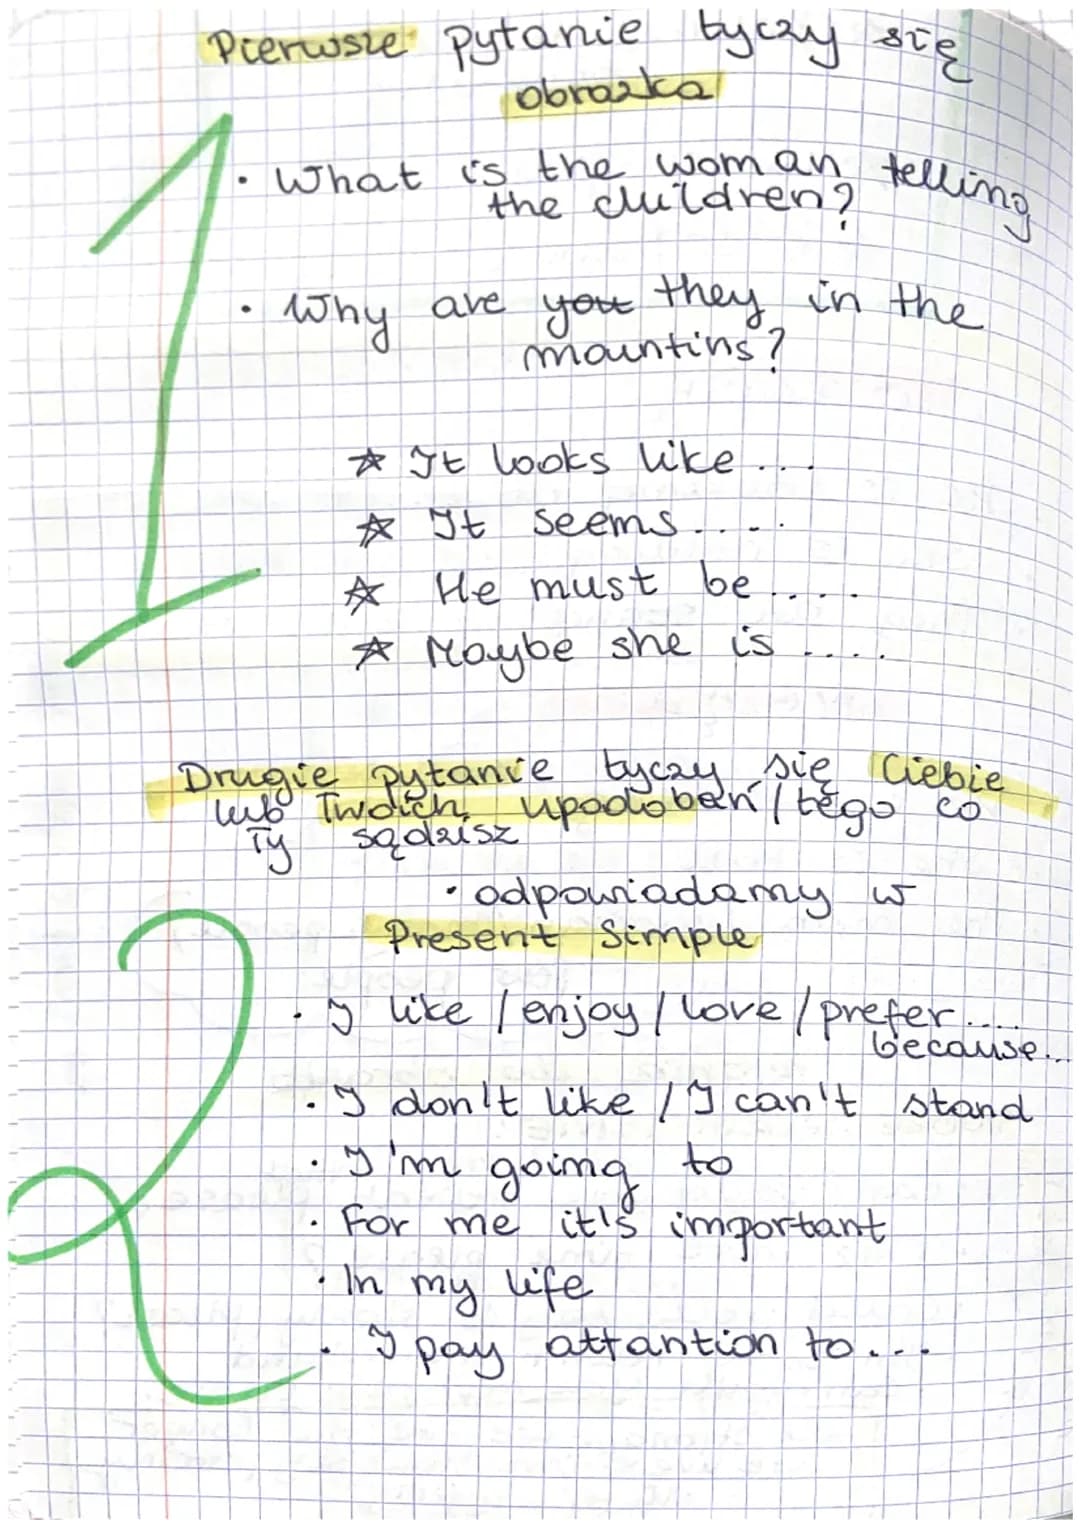 Pierwsze pytanie tyczy się
obrazka
1
• What is the woman telling
the children?
• Why are you they in the
mountins?
☆ It looks like ...
☆ It seems ....
☆ He must be ....
☆ Maybe she is ....
Drugie pytanie tyczy się Ciebie
lub Twoich upodobań / tego co
Ty sądzisz
• odpowiadamy w
Present Simple
2
• I like / enjoy / love / prefer ....
because...
• I don't like / I can't stand
• I'm going to
• For me it's important
• In my life
• I pay attantion to ...